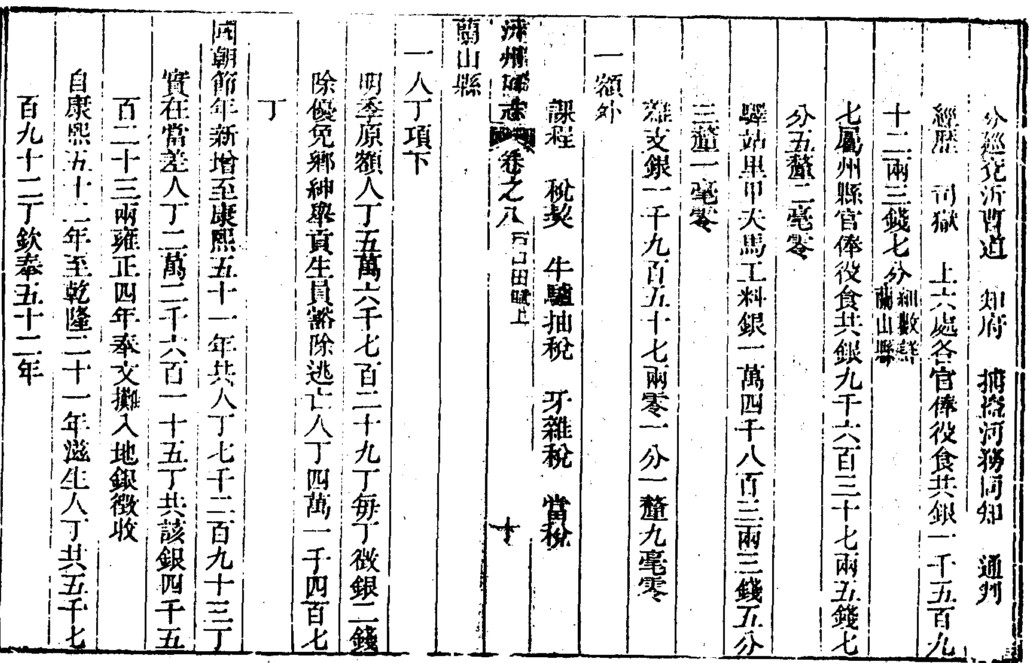 分廵兗沂曹道　知府　捕盜河務同知　通判
經歷　司獄　上六處各官俸役食共銀一千五百九
十二兩三錢七分細數詳蘭山縣
七屬州縣官俸役食共銀九千六百三十七兩五錢七
分五釐二毫零
驛站里甲夫馬工料銀一萬四千八百三兩三錢五分
三釐一毫零
雜支銀一千九百五十七兩零一分一釐九毫零
一額外
課程　稅契　牛驢抽稅　牙雜稅　當稅
沂州府志　卷之八　戶口田賦上　十
蘭山縣
一人丁項下
明季原額人丁五萬六千七百二十九丁每丁徵銀二錢
除優免鄉紳舉貢生員豁除逃亡人丁四萬一千四百七
丁
國朝節年新增至康熙五十一年共人丁七千二百九十三丁
實在當差人丁二萬二千六百一十五丁共該銀四千五
百二十三兩雍正四年奉文攤入地銀徵收
自康熙五十二年至乾隆二十一年滋生人丁共五千七
百九十二丁欽奉五十二年